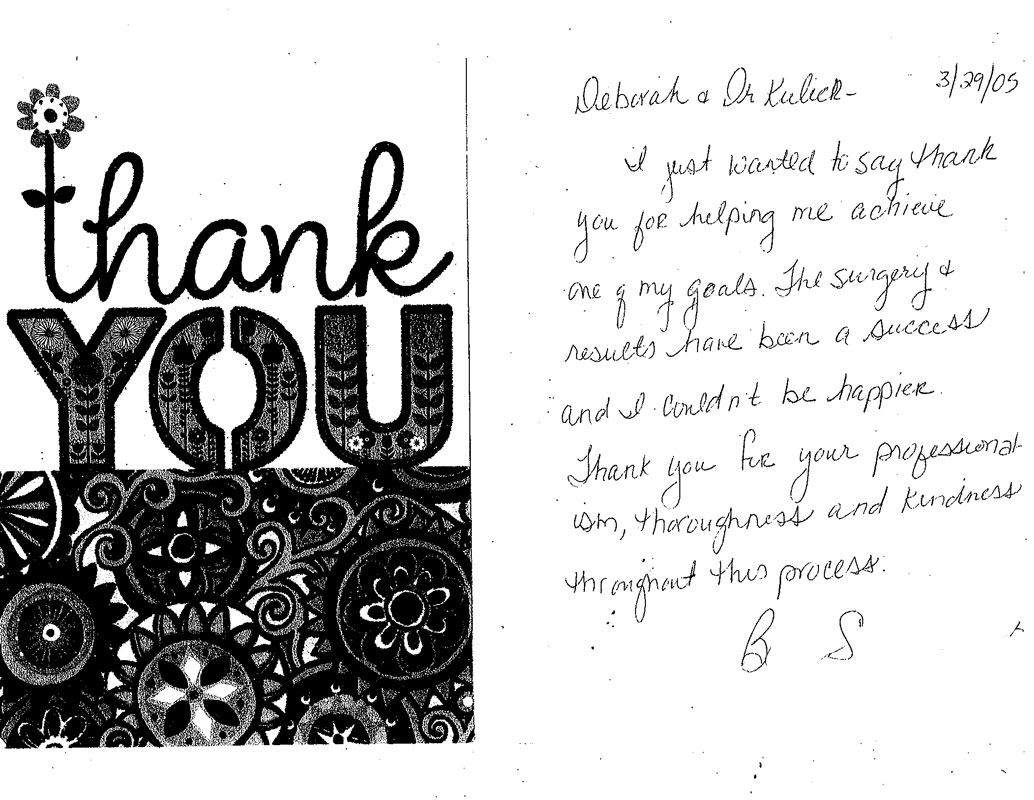 thank
YOU
Deborah & Dr Kulick- 3/29/05
I just wanted to say thank
you for helping me achieve
one of my goals. The surgery &
results have been a success
and I couldn't be happier.
Thank you for your professional-
ism, thoroughness and kindness
throughout this process.
B S